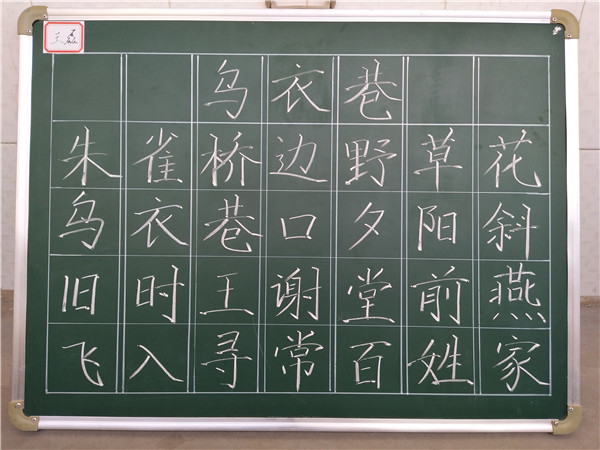 王磊
乌衣巷
朱雀桥边野草花
乌衣巷口夕阳斜
旧时王谢堂前燕
飞入寻常百姓家